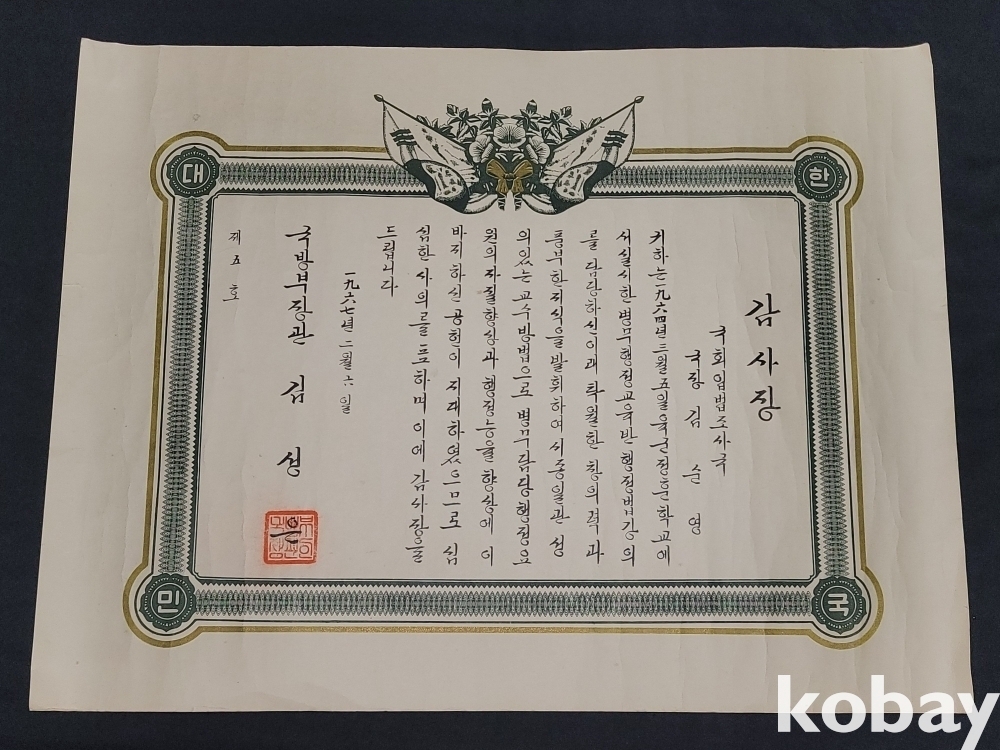 대 한 민 국
감사장
국회입법조사국
국장 김순영
귀하는 一九六四년 三월 五일 육군정훈학교에
서실시한병무행정교육반 행정법강의
를 담당하신이래 탁월한 창의력과
풍부한지식을발휘하여 시종일관 성
의있는 교수방법으로 병무담당행정요
원의자질향상과 행정능률향상에 이
바지하신 공헌이 지대하였으므로 심
심한 사의를 표하며 이에 감사장을
드립니다
一九六七년 二월 六일
국방부장관 김성은
제 五 호
kobay